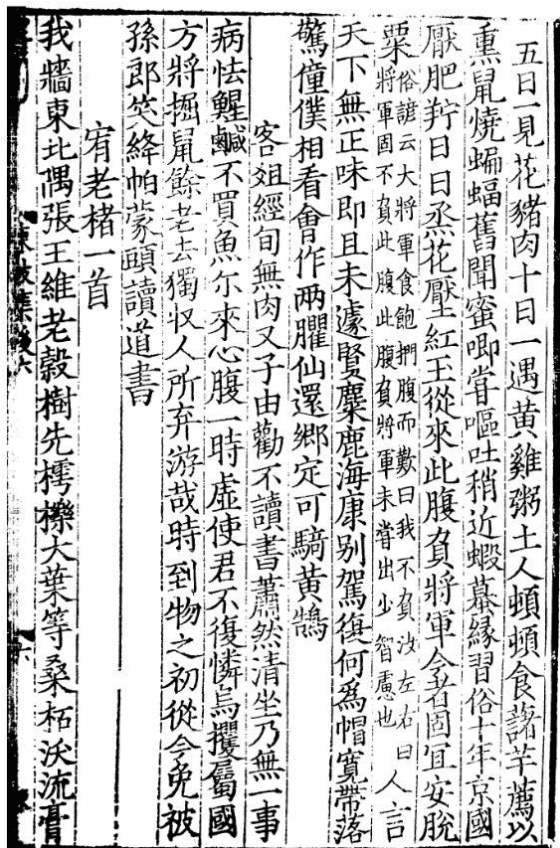 五日一見花豬肉十日一遇黃雞粥土人頓頓食藷芋薦以
熏鼠燒蝙蝠舊聞蜜唧嘗嘔吐稍近蝦蟇緣習俗十年京國
厭肥羜日日烝花壓紅玉從來此腹負將軍今者固宜安脫
粟
俗諺云大將軍食飽捫腹而歎曰我不負汝左右曰
將軍固不負此腹此腹負將軍未嘗出少智慮也
人言
天下無正味即且未遽賢麋鹿海康別駕復何爲帽寬帶落
驚僮僕相看會作兩臞仙還鄉定可騎黃鵠
客俎經旬無肉又子由勸不讀書蕭然清坐乃無一事
病怯鯹鹹不買魚尔來心腹一時虛使君不復憐烏攫屬國
方將掘鼠餘老去獨収人所弃游哉時到物之初從今免被
孫郎笑絳帕蒙頭讀道書
宥老楮一首
我牆東北隅張王維老榖樹先樗櫟大葉等桑柘沃流膏